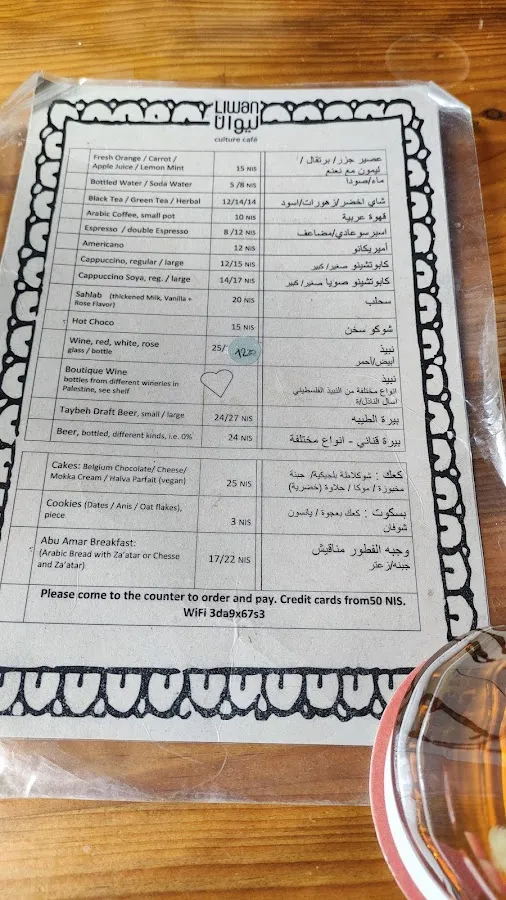 LIWAN
ليوان
culture café
Fresh Orange / Carrot / 15 NIS عصير جزر/ برتقال /
Apple Juice / Lemon Mint ليمون مع نعنع
Bottled Water / Soda Water 5 /8 NIS ماء/صودا
Black Tea / Green Tea / Herbal 12/14/14 شاي اخضر/زهورات/اسود
Arabic Coffee, small pot 10 NIS قهوة عربية
Espresso / double Espresso 8 /12 NIS اسبرسوعادي/مضاعف
Americano 12 NIS أميريكانو
Cappuccino, regular / large 12/15 NIS كابوتشينو صغير/ كبير
Cappuccino Soya, reg. / large 14/17 NIS كابوتشينو صويا صغير/ كبير
Sahlab (thickened Milk, Vanilla + 20 NIS سحلب
Rose Flavor)
Hot Choco 15 NIS شوكو سخن
Wine, red, white, rose 25/ 120 نبيذ
glass / bottle ابيض/احمر
Boutique Wine نبيذ
bottles from different wineries in انواع مختلفة من النبيذ الفلسطيني
Palestine, see shelf اسال النادل/ة
Taybeh Draft Beer, small / large 24/27 NIS بيرة الطيبه
Beer, bottled, different kinds, i.e. 0% 24 NIS بيرة قناني - انواع مختلفة
Cakes: Belgium Chocolate/ Cheese/ 25 NIS كعك : شوكلاطة بلجيكية/ جبنة
Mokka Cream / Halva Parfait (vegan) مخبوزة / موكا / حلاوة (خضرية)
Cookies (Dates / Anis / Oat flakes), 3 NIS بسكوت : كعك بعجوة / يانسون
piece شوفان
Abu Amar Breakfast: 17/22 NIS وجبه الفطور مناقيش
(Arabic Bread with Za'atar or Chesse جبنه/زعتر
and Za'atar)
Please come to the counter to order and pay. Credit cards from50 NIS.
WiFi 3da9x67s3